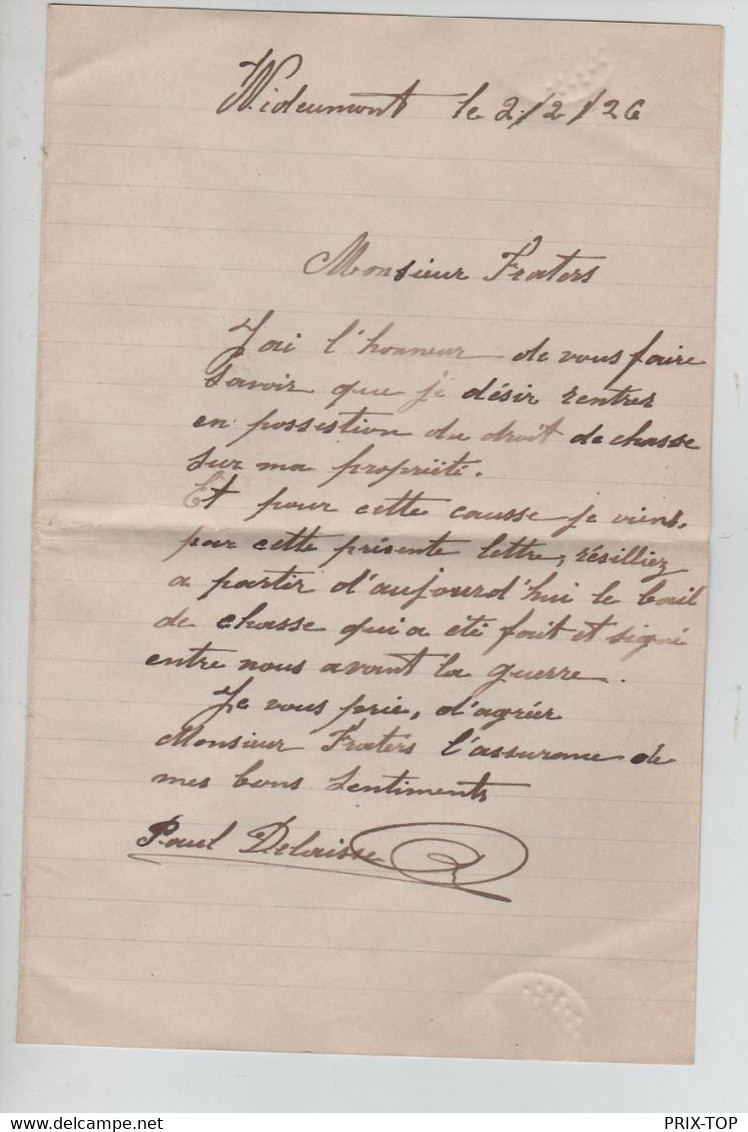 Wideumont le 2/2/26
Monsieur Fraters
J'ai l'honneur de vous faire
savoir que je désir rentrer
en possestion du droit de chasse
sur ma propriëté.
Et pour cette causse je viens,
par cette présente lettre, résilliez
a partir d'aujourd'hui le bail
de chasse qui a été fait et signé
entre nous avant la guerre.
Je vous prie, d'agréer
Monsieur Fraters l'assurance de
mes bons sentiments
Paul Delaisse
www.delcampe.net
PRIX-TOP